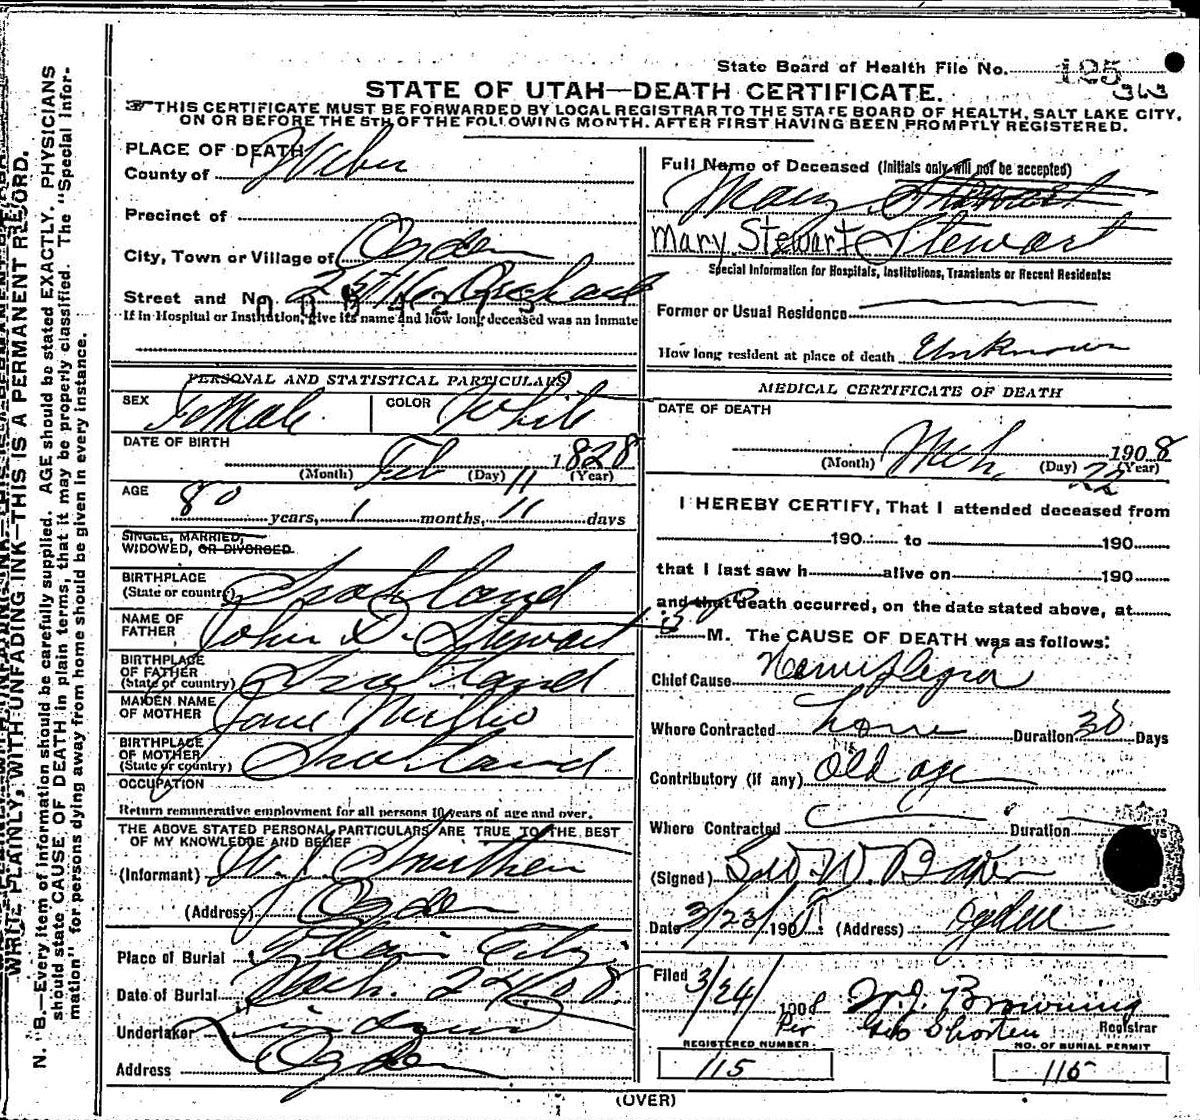 State Board of Health File No. 125
343
STATE OF UTAH—DEATH CERTIFICATE.
THIS CERTIFICATE MUST BE FORWARDED BY LOCAL REGISTRAR TO THE STATE BOARD OF HEALTH, SALT LAKE CITY,
ON OR BEFORE THE 5TH OF THE FOLLOWING MONTH. AFTER FIRST HAVING BEEN PROMPTLY REGISTERED.
PLACE OF DEATH
County of Weber
Precinct of
City, Town or Village of Ogden
Street and No.
If in Hospital or Institution, give its name and how long deceased was an inmate
PERSONAL AND STATISTICAL PARTICULARS
SEX Female COLOR White
DATE OF BIRTH
(Month) Feb (Day) 11 1828 (Year)
AGE
80 years, 1 months, 11 days
SINGLE, MARRIED,
WIDOWED, OR DIVORCED
BIRTHPLACE
(State or country) Scotland
NAME OF
FATHER John D. Stewart
BIRTHPLACE
OF FATHER
(State or country) Scotland
MAIDEN NAME
OF MOTHER Jane
BIRTHPLACE
OF MOTHER
(State or country) Scotland
OCCUPATION
Return remunerative employment for all persons 10 years of age and over.
THE ABOVE STATED PERSONAL PARTICULARS ARE TRUE TO THE BEST
OF MY KNOWLEDGE AND BELIEF
(Informant) W. J.
(Address) Ogden
Place of Burial Plain City
Date of Burial Mch. 24/08
Undertaker Lindquist
Address Ogden
Full Name of Deceased (Initials only will not be accepted)
Mary Stewart
Mary Stewart Stewart
Special Information for Hospitals, Institutions, Transients or Recent Residents:
Former or Usual Residence
How long resident at place of death Unknown
MEDICAL CERTIFICATE OF DEATH
DATE OF DEATH
(Month) Mch. (Day) 22 1908 (Year)
I HEREBY CERTIFY, That I attended deceased from
190 to 190
that I last saw h alive on 190
and that death occurred, on the date stated above, at
M. The CAUSE OF DEATH was as follows:
Chief Cause Hemiplegia
Where Contracted home Duration 30 Days
Contributory (if any) Old age
Where Contracted Duration Days
(Signed) Geo. W. Baker
Date 3/23/1908 (Address) Ogden
Filed 3/24/ 1908 W. J. Browning
Per Geo Shorten Registrar
REGISTERED NUMBER
115
NO. OF BURIAL PERMIT
115
(OVER)
WRITE PLAINLY, WITH UNFADING INK—THIS IS A PERMANENT RECORD.
N. B.—Every item of information should be carefully supplied. AGE should be stated EXACTLY. PHYSICIANS
should state CAUSE OF DEATH in plain terms, that it may be properly classified. The "Special Information" for persons dying away from home should be given in every instance.